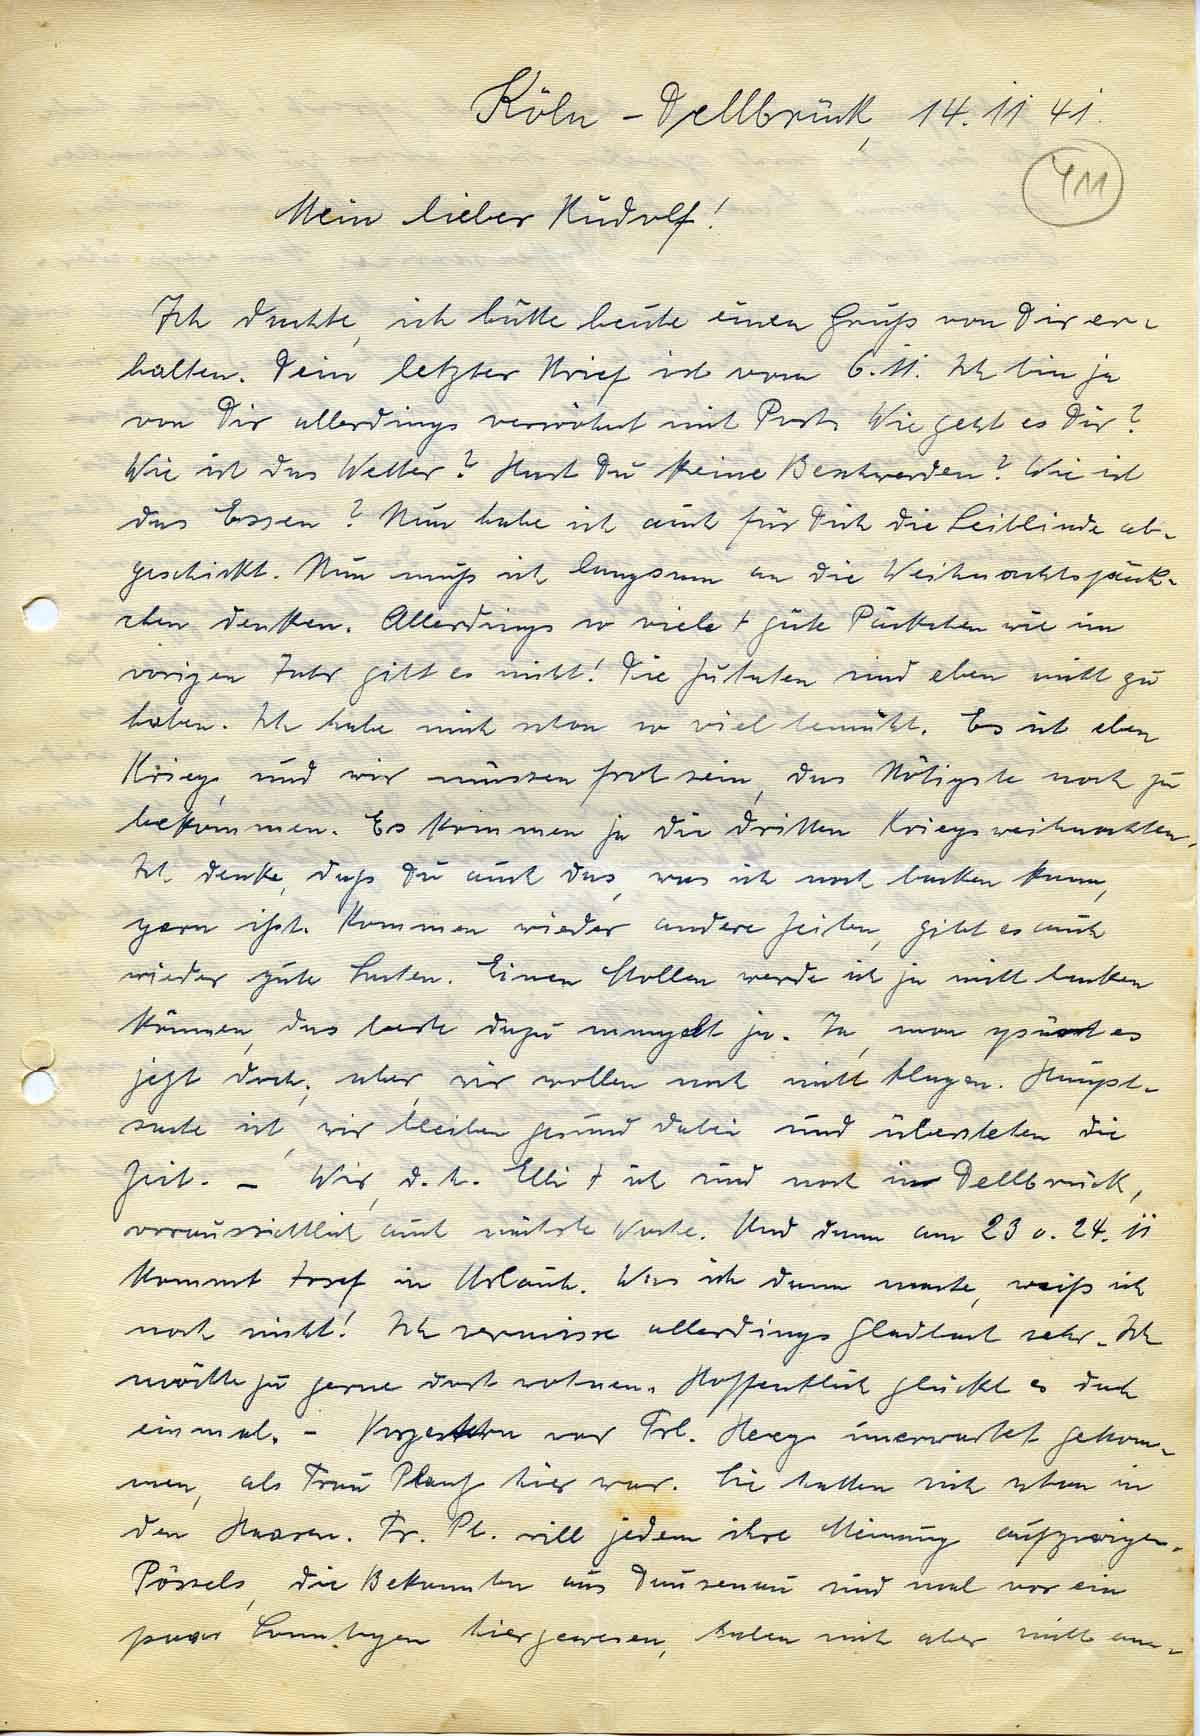 Köln - Dellbrück, 14. 11 41.
411
Mein lieber Rudolf!
Ich dachte, ich hätte heute einen Gruß von Dir er-
halten. Dein letzter Brief ist vom 6. 11. Ich bin ja
von Dir allerdings verwöhnt mit Post. Wie geht es Dir?
Wie ist das Wetter? Hast Du keine Beschwerden? Wie ist
das Essen? Nun habe ich auch für Dich die Leibbinde ab-
geschickt. Nun muß ich langsam an die Weihnachtspäck-
chen denken. Allerdings so viele + gute Päckchen wie im
vorigen Jahr gibt es nicht! Die Zutaten sind eben nicht zu
haben. Ich habe mich schon so viel bemüht. Es ist eben
Krieg, und wir müssen froh sein, das Nötigste noch zu
bekommen. Es kommen ja die dritten Kriegsweihnachten.
Ich denke, daß Du auch das, was ich noch backen kann,
gern ißt. Kommen wieder andere Zeiten, gibt es auch
wieder gute Sachen. Einen Stollen werde ich ja nicht backen
können, das beste dazu mangelt ja. Ja, man spürt es
jetzt doch, aber wir wollen noch nicht klagen. Haupt-
sache ist, wir bleiben gesund dabei und überstehen die
Zeit. - Wir, d. h. Elli + ich sind noch in Dellbrück,
voraussichtlich auch nächste Woche. Und dann am 23 o. 24. 11
kommt Josef in Urlaub. Was ich dann mache, weiß ich
noch nicht! Ich vermisse allerdings Gladbach sehr. Ich
möchte zu gerne dort wohnen. Hoffentlich glückt es doch
einmal. - Vorgestern war Frl. Heeg unerwartet gekom-
men, als Frau hier war. Sie hatten sich schon in
den Haaren. Fr. Pl. will jedem ihre Meinung aufzwingen.
Pössels, die Bekannten aus Dausenau sind mal vor ein
paar Sonntagen hier gewesen, haben mich aber nicht an-